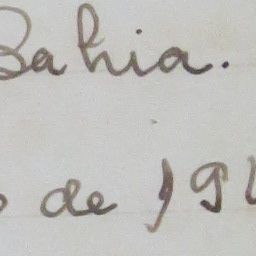 Bahia.
de 19